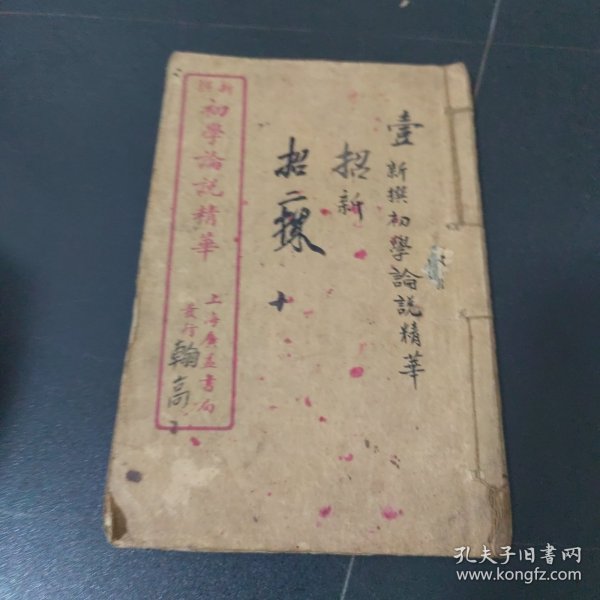 壹
新撰初學論説精華
招新
招二
十
新撰
初學論説精華
上海廣益書局
發行
翰高
孔夫子旧书网
www.kongfz.com